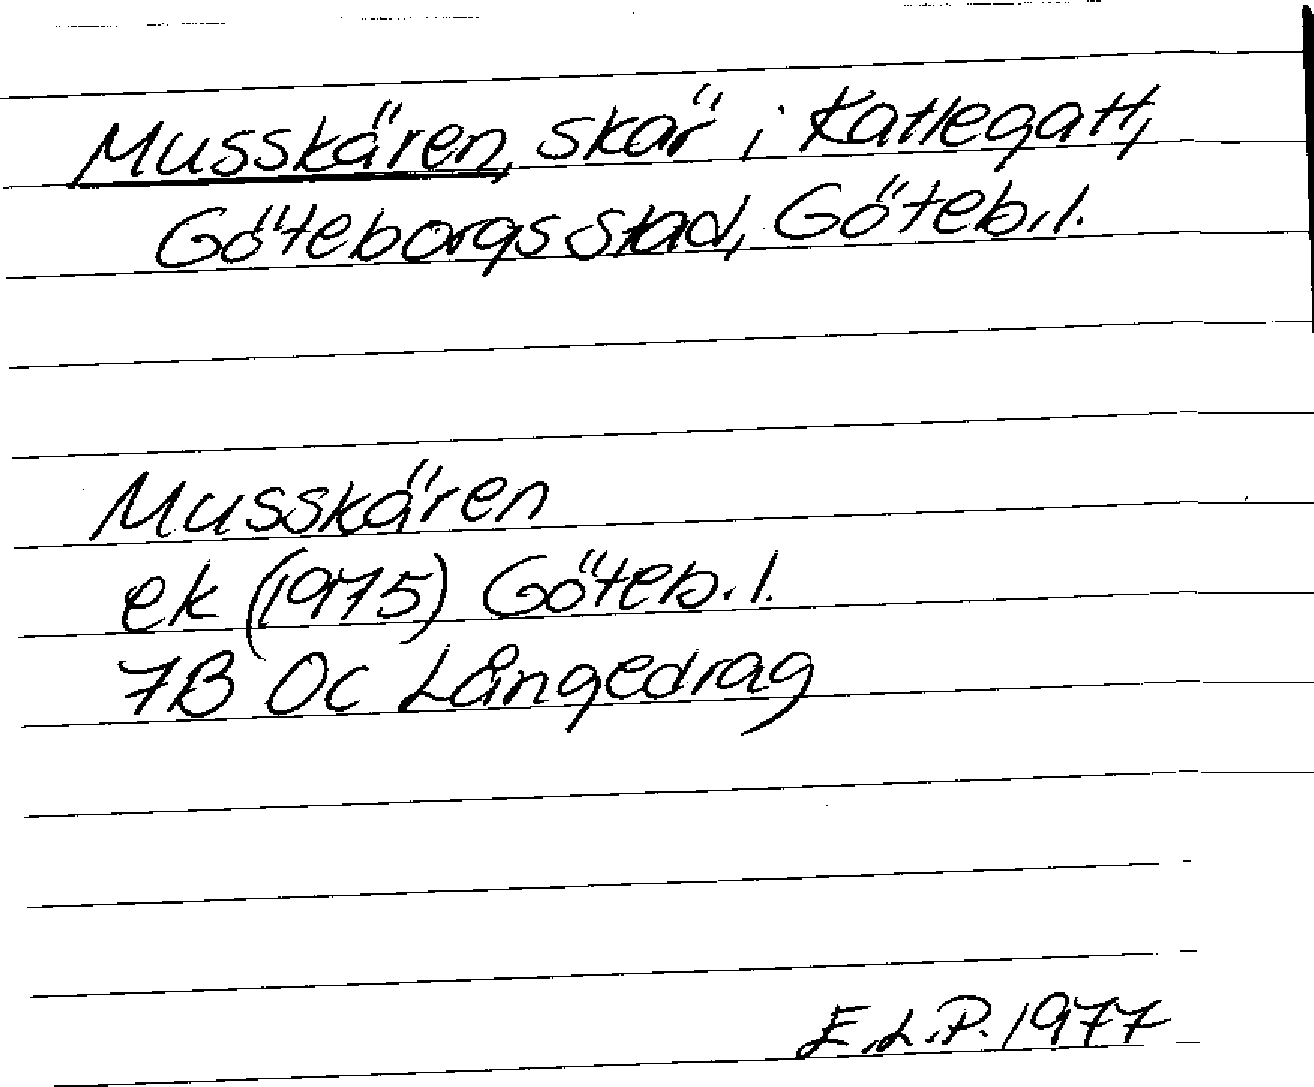 Musskären, skär i Kattegatt,
Göteborgs stad, Göteb. l.
Musskären
ek (1975) Göteb. l.
7B 0c Långedrag
E.L.P. 1977